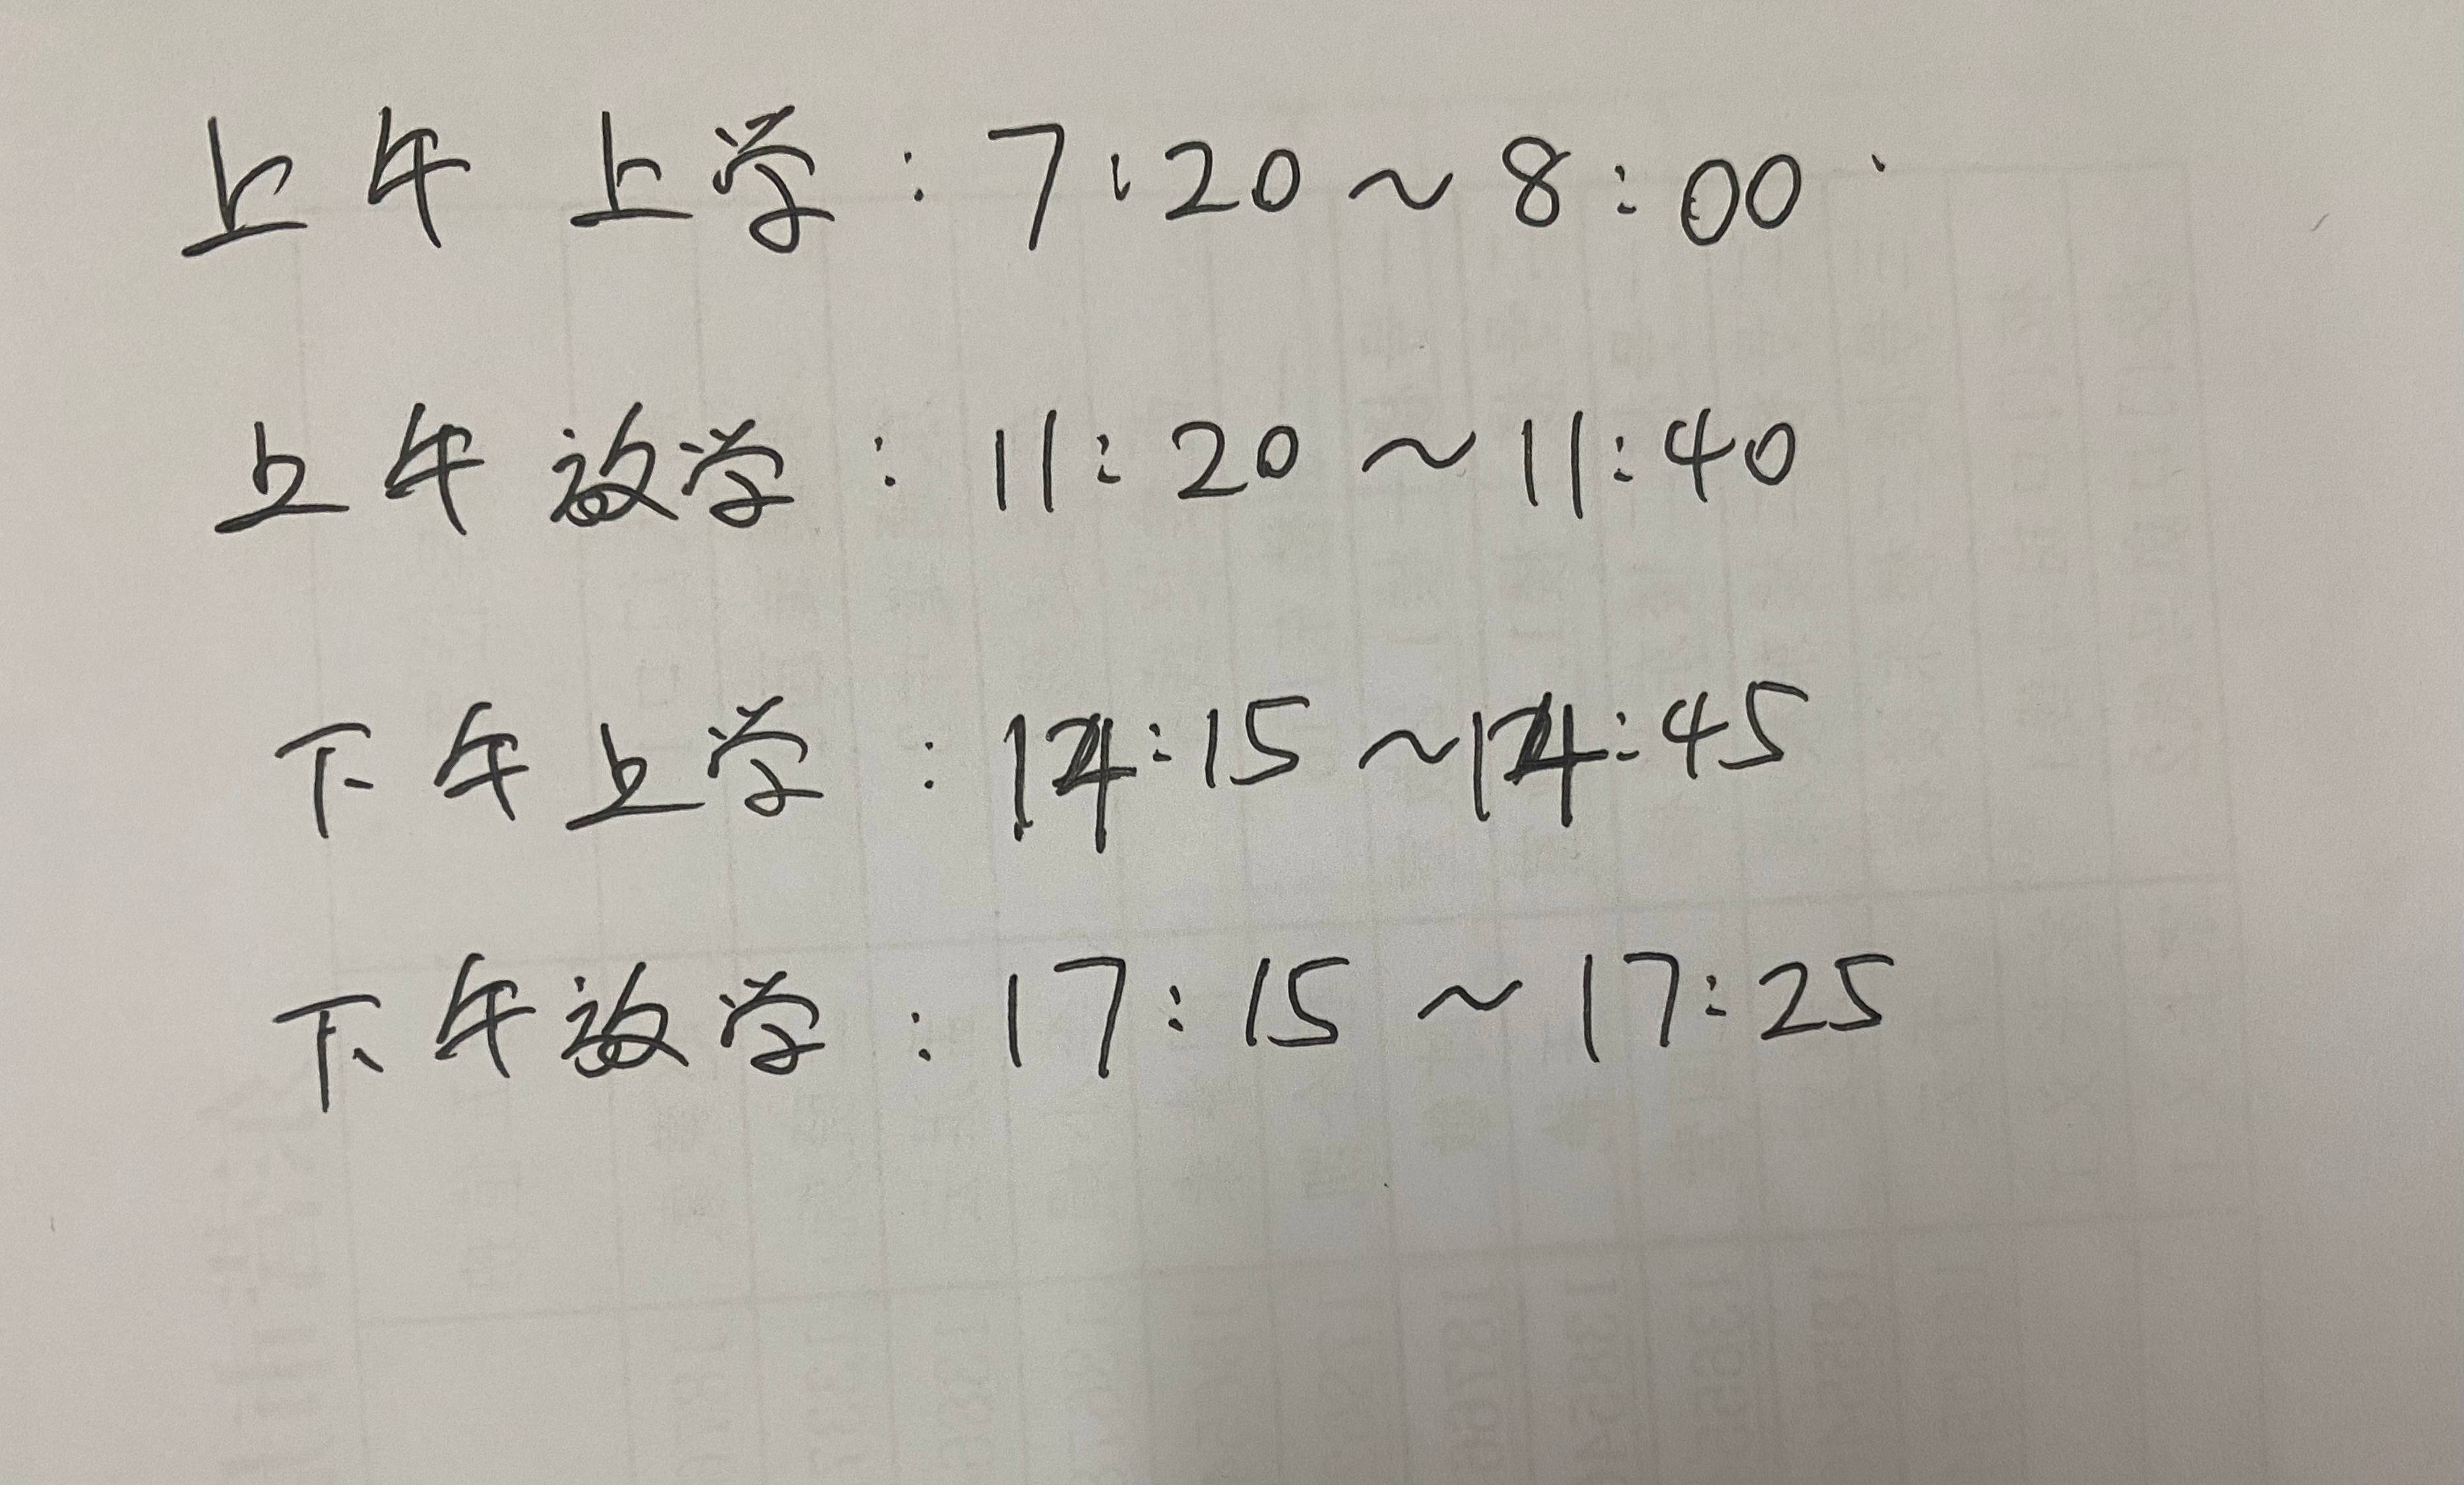 上午上学：7:20～8:00
上午放学：11:20～11:40
下午上学：14:15～14:45
下午放学：17:15～17:25